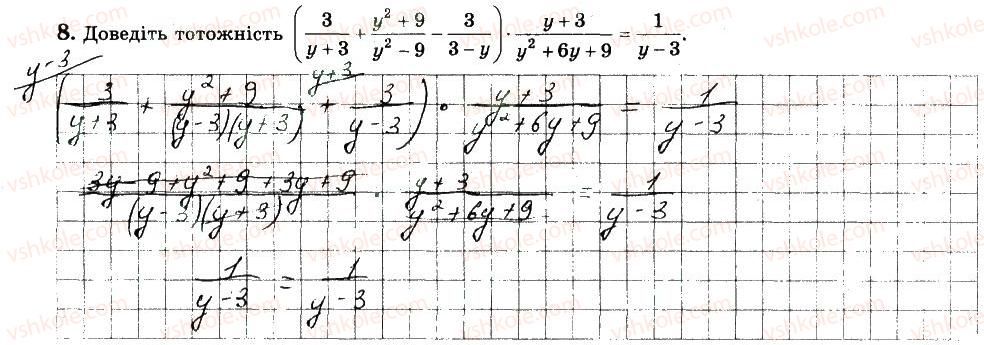 8. Доведіть тотожність (3/(y+3) + (y²+9)/(y²−9) − 3/(3−y)) · (y+3)/(y²+6y+9) = 1/(y−3).
y−3 y+3
(3/(y+3) + (y²+9)/((y−3)(y+3)) + 3/(y−3)) · (y+3)/(y²+6y+9) = 1/(y−3)
(3y−9+y²+9+3y+9)/((y−3)(y+3)) · (y+3)/(y²+6y+9) = 1/(y−3)
1/(y−3) = 1/(y−3)